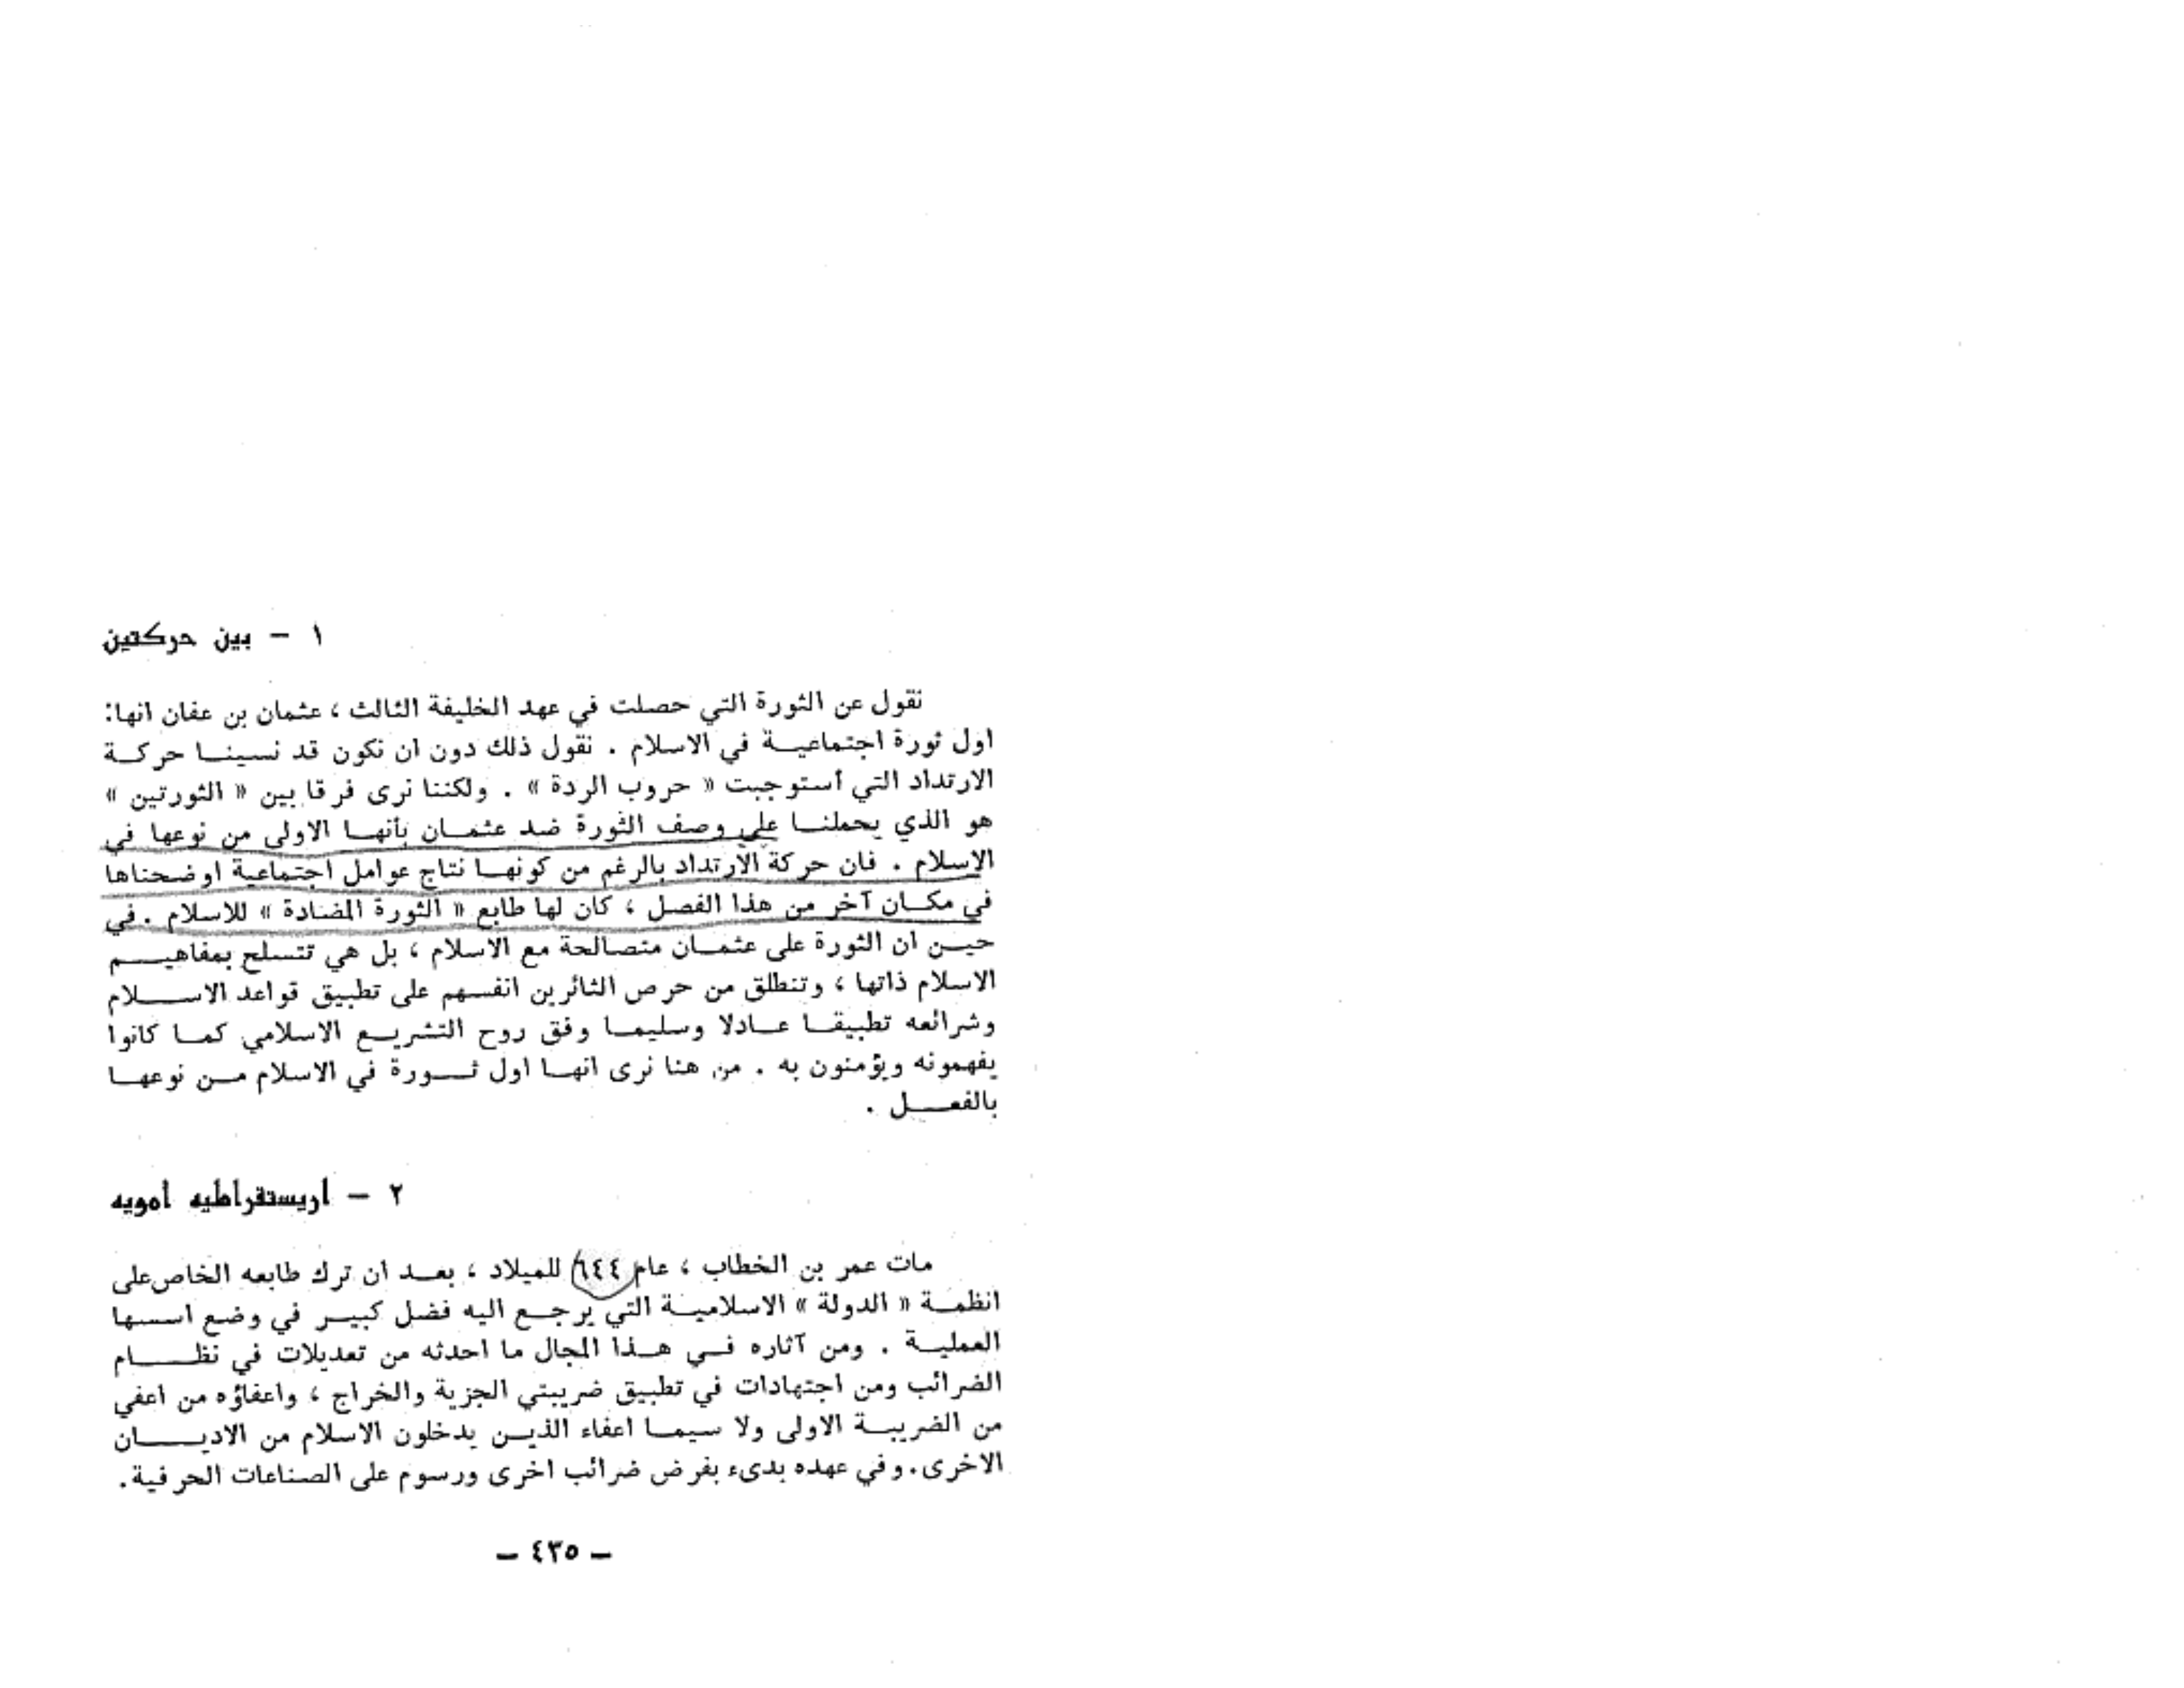 ١ - بين حركتين
نقول عن الثورة التي حصلت في عهد الخليفة الثالث ، عثمان بن عفان انها:
اول ثورة اجتماعيــة في الاسلام . نقول ذلك دون ان نكون قد نسينــا حركــة
الارتداد التي أستوجبت « حروب الردة » . ولكننا نرى فرقا بين « الثورتين »
هو الذي يحملنــا على وصف الثورة ضد عثمــان بأنهــا الاولى من نوعها في
الاسلام . فان حركة الارتداد بالرغم من كونهــا نتاج عوامل اجتماعية اوضحناها
في مكــان آخر من هذا الفصل ، كان لها طابع « الثورة المضادة » للاسلام . في
حيــن ان الثورة على عثمــان متصالحة مع الاسلام ، بل هي تتسلح بمفاهيــم
الاسلام ذاتها ، وتنطلق من حرص الثائرين انفسهم على تطبيق قواعد الاســلام
وشرائعه تطبيقــا عــادلا وسليمــا وفق روح التشريــع الاسلامي كمــا كانوا
يفهمونه ويؤمنون به . من هنا نرى انهــا اول ثــورة في الاسلام مــن نوعهــا
بالفعــل .
٢ - اريستقراطيه امويه
مات عمر بن الخطاب ، عام ٦٤٤ للميلاد ، بعــد ان ترك طابعه الخاص على
انظمــة « الدولة » الاسلاميــة التي يرجــع اليه فضل كبيــر في وضع اسسها
العمليــة . ومن آثاره فــي هــذا المجال ما احدثه من تعديلات في نظــام
الضرائب ومن اجتهادات في تطبيق ضريبتي الجزية والخراج ، واعفاؤه من اعفي
من الضريبــة الاولى ولا سيمــا اعفاء الذيــن يدخلون الاسلام من الاديــان
الاخرى . وفي عهده بدىء بفرض ضرائب اخرى ورسوم على الصناعات الحرفية .
- ٤٣٥ -